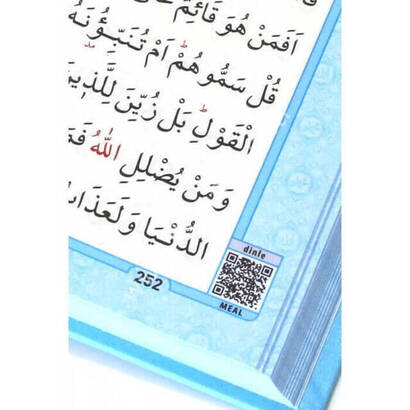 اَفَمَنْ هُوَ قَٓائِمٌ
قُلْ سَمُّوهُمْۜ اَمْ تُنَبِّؤُ۫نَهُ
الْقَوْلِۜ بَلْ زُيِّنَ لِلَّذ۪ينَ
وَمَنْ يُضْلِلِ اللّٰهُ فَمَ
الدُّنْيَا وَلَعَذَا
dinle
252
MEAL